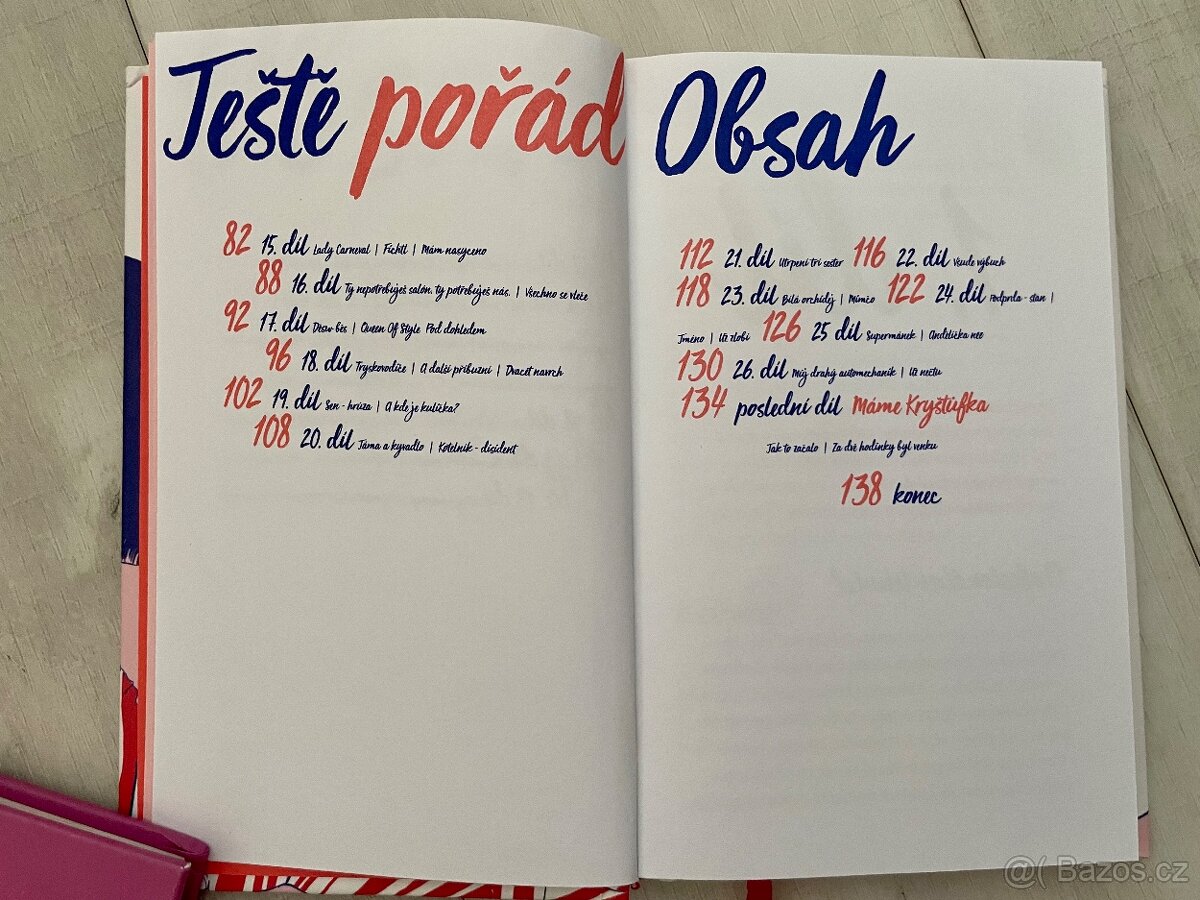 Ještě pořád
82 15. díl Lady Carneval | Fichtl | Mám nasyceno
88 16. díl Ty nepotřebuješ salón, ty potřebuješ nás. | Všechno se vleče
92 17. díl Děsw běs | Queen Of Style Pod dohledem
96 18. díl Tryskovodiče | A další příbuzní | Dvacet navrch
102 19. díl Sen - hrůza | A kde je kulička?
108 20. díl Jáma a kyvadlo | Kotelník - disident
Obsah
112 21. díl Utrpení tří sester 116 22. díl Všude výbuch
118 23. díl Bílá orchidej | Mimčo 122 24. díl Podprda - stan |
Jméno | Už zlobí 126 25 díl Supermánek | Andělíčka néé
130 26. díl Můj drahý automechanik | Už nečtu
134 poslední díl Máme Kryštůfka
Jak to začalo | Za dvě hodinky byl venku
138 konec
@( Bazos.cz